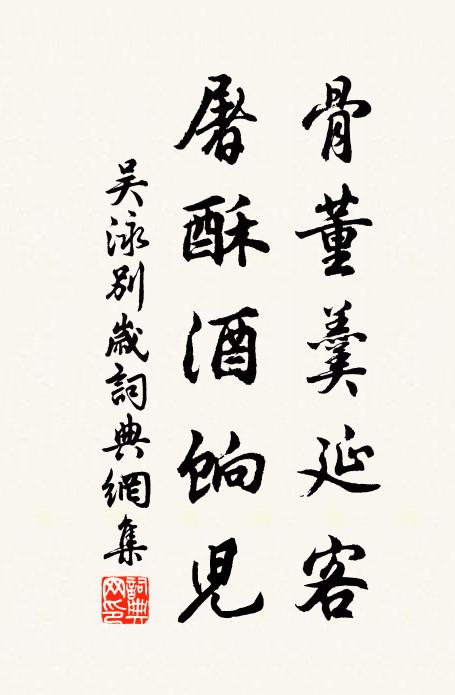 骨董羹延客
屠酥酒餉兒
吴泳別歲詞典網集
詞典
网印